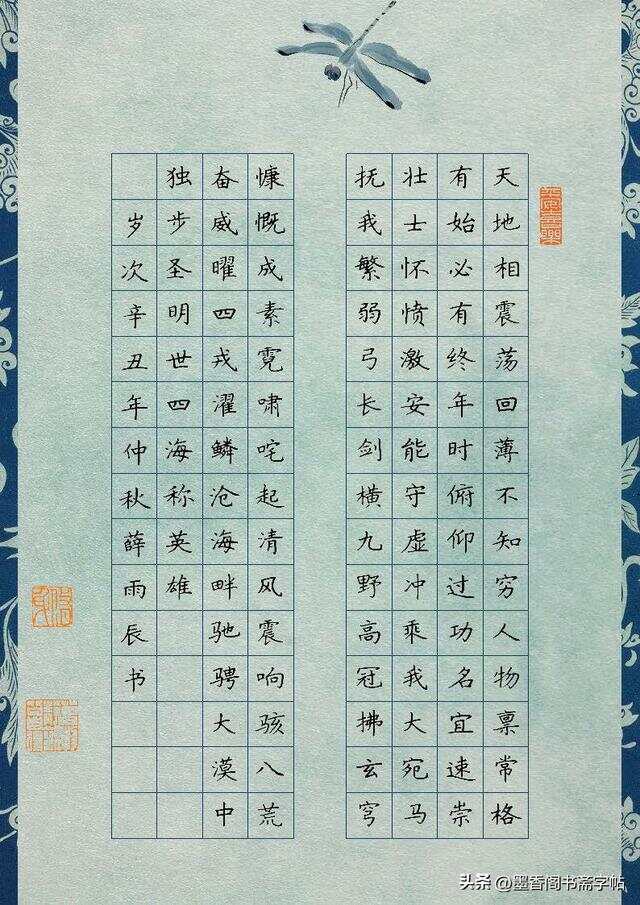 天地相震荡回薄不知穷人物禀常格
有始必有终年时俯仰过功名宜速崇
壮士怀愤激安能守虚冲乘我大宛马
抚我繁弱弓长剑横九野高冠拂玄穹
慷慨成素霓啸咤起清风震响骇八荒
奋威曜四戎濯鳞沧海畔驰骋大漠中
独步圣明世四海称英雄
岁次辛丑年仲秋薛雨辰书
头条 @墨香阁书斋字帖